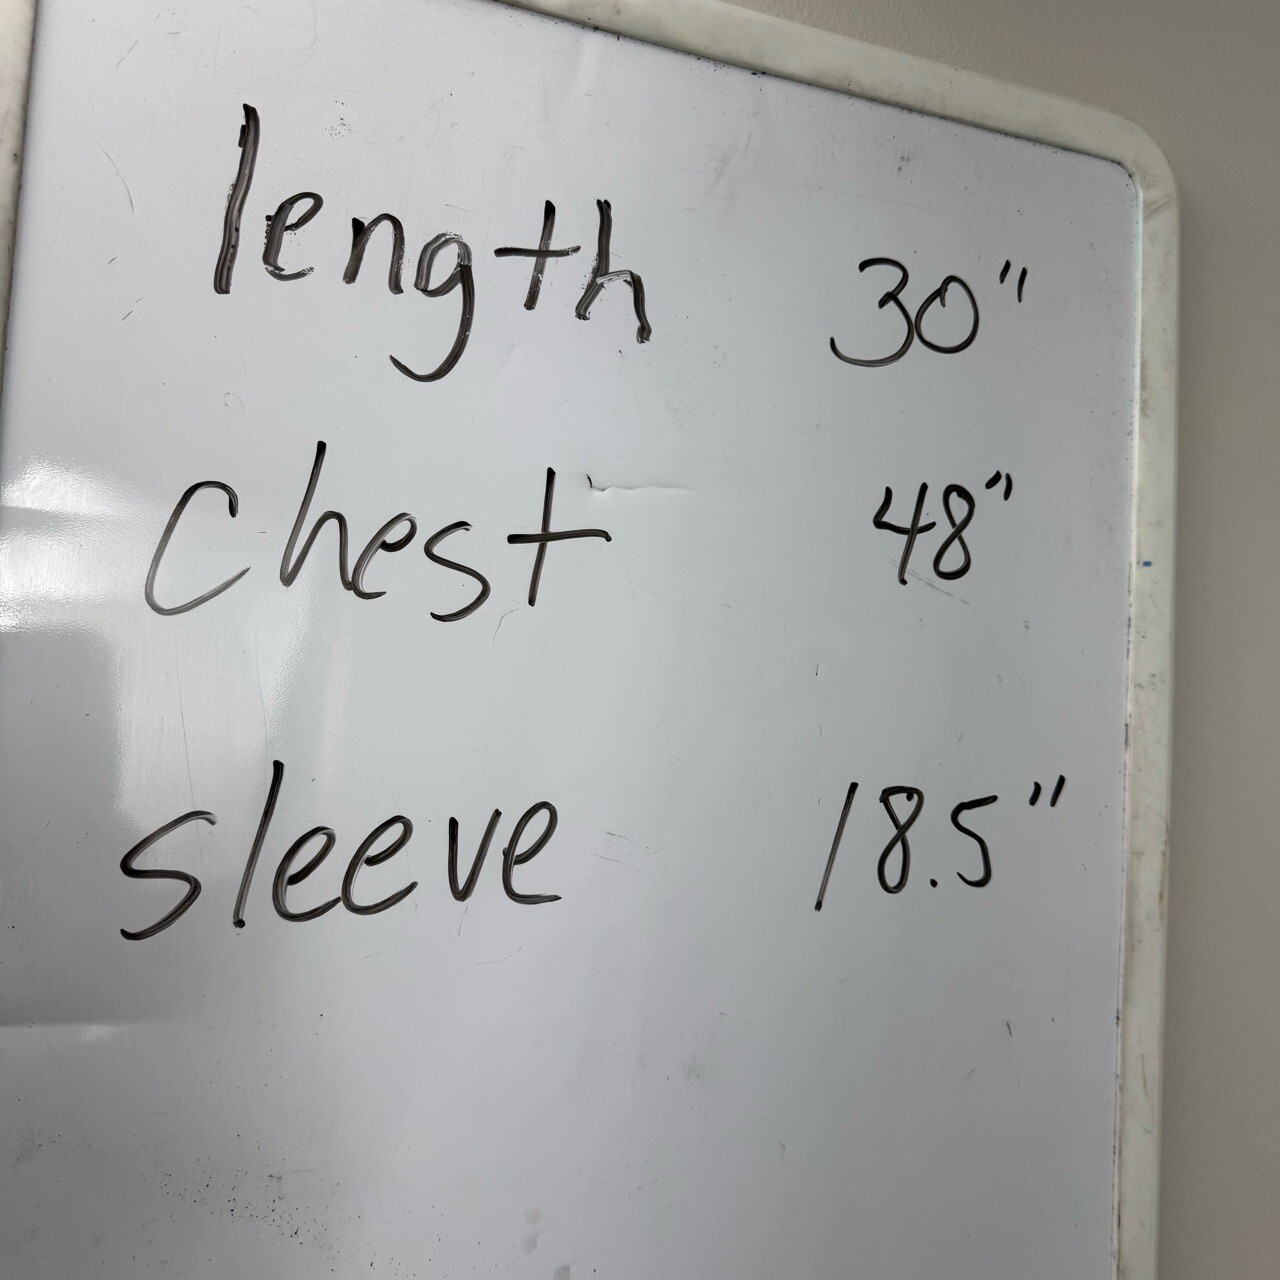 length 30"
chest 48"
sleeve 18.5"